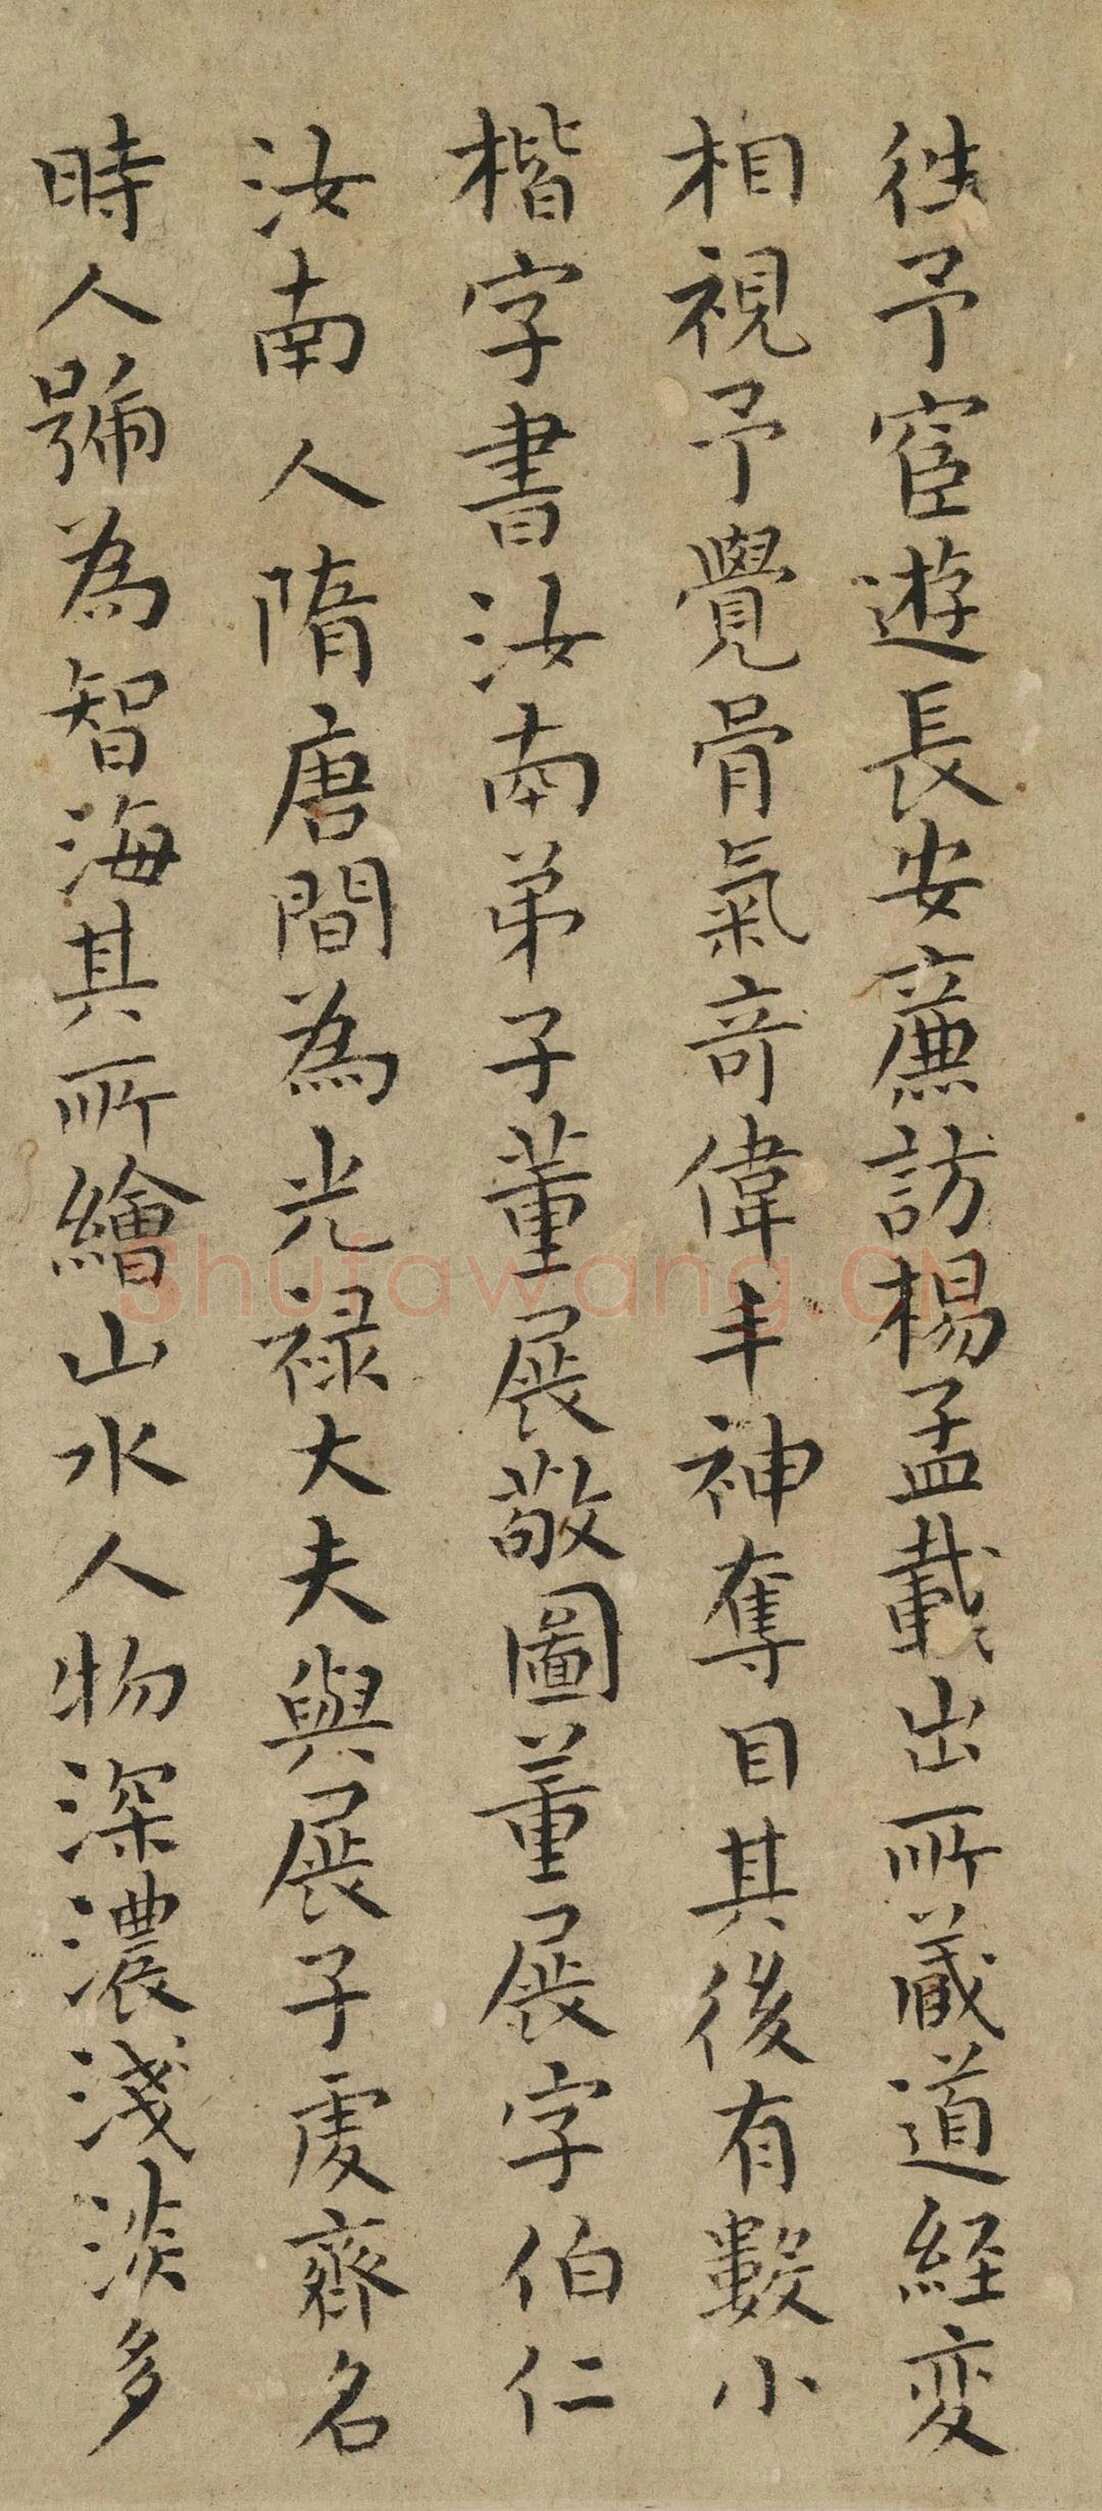 徃予宦遊長安廉訪楊孟載出所藏道経変
相視予覺骨氣竒偉丰神奪目其後有數小
楷字書汝南弟子董展敬圖董展字伯仁
汝南人隋唐間為光禄大夫與展子虔齊名
時人號為智海其所繪山水人物深濃淺淡多
Shufawang.CN